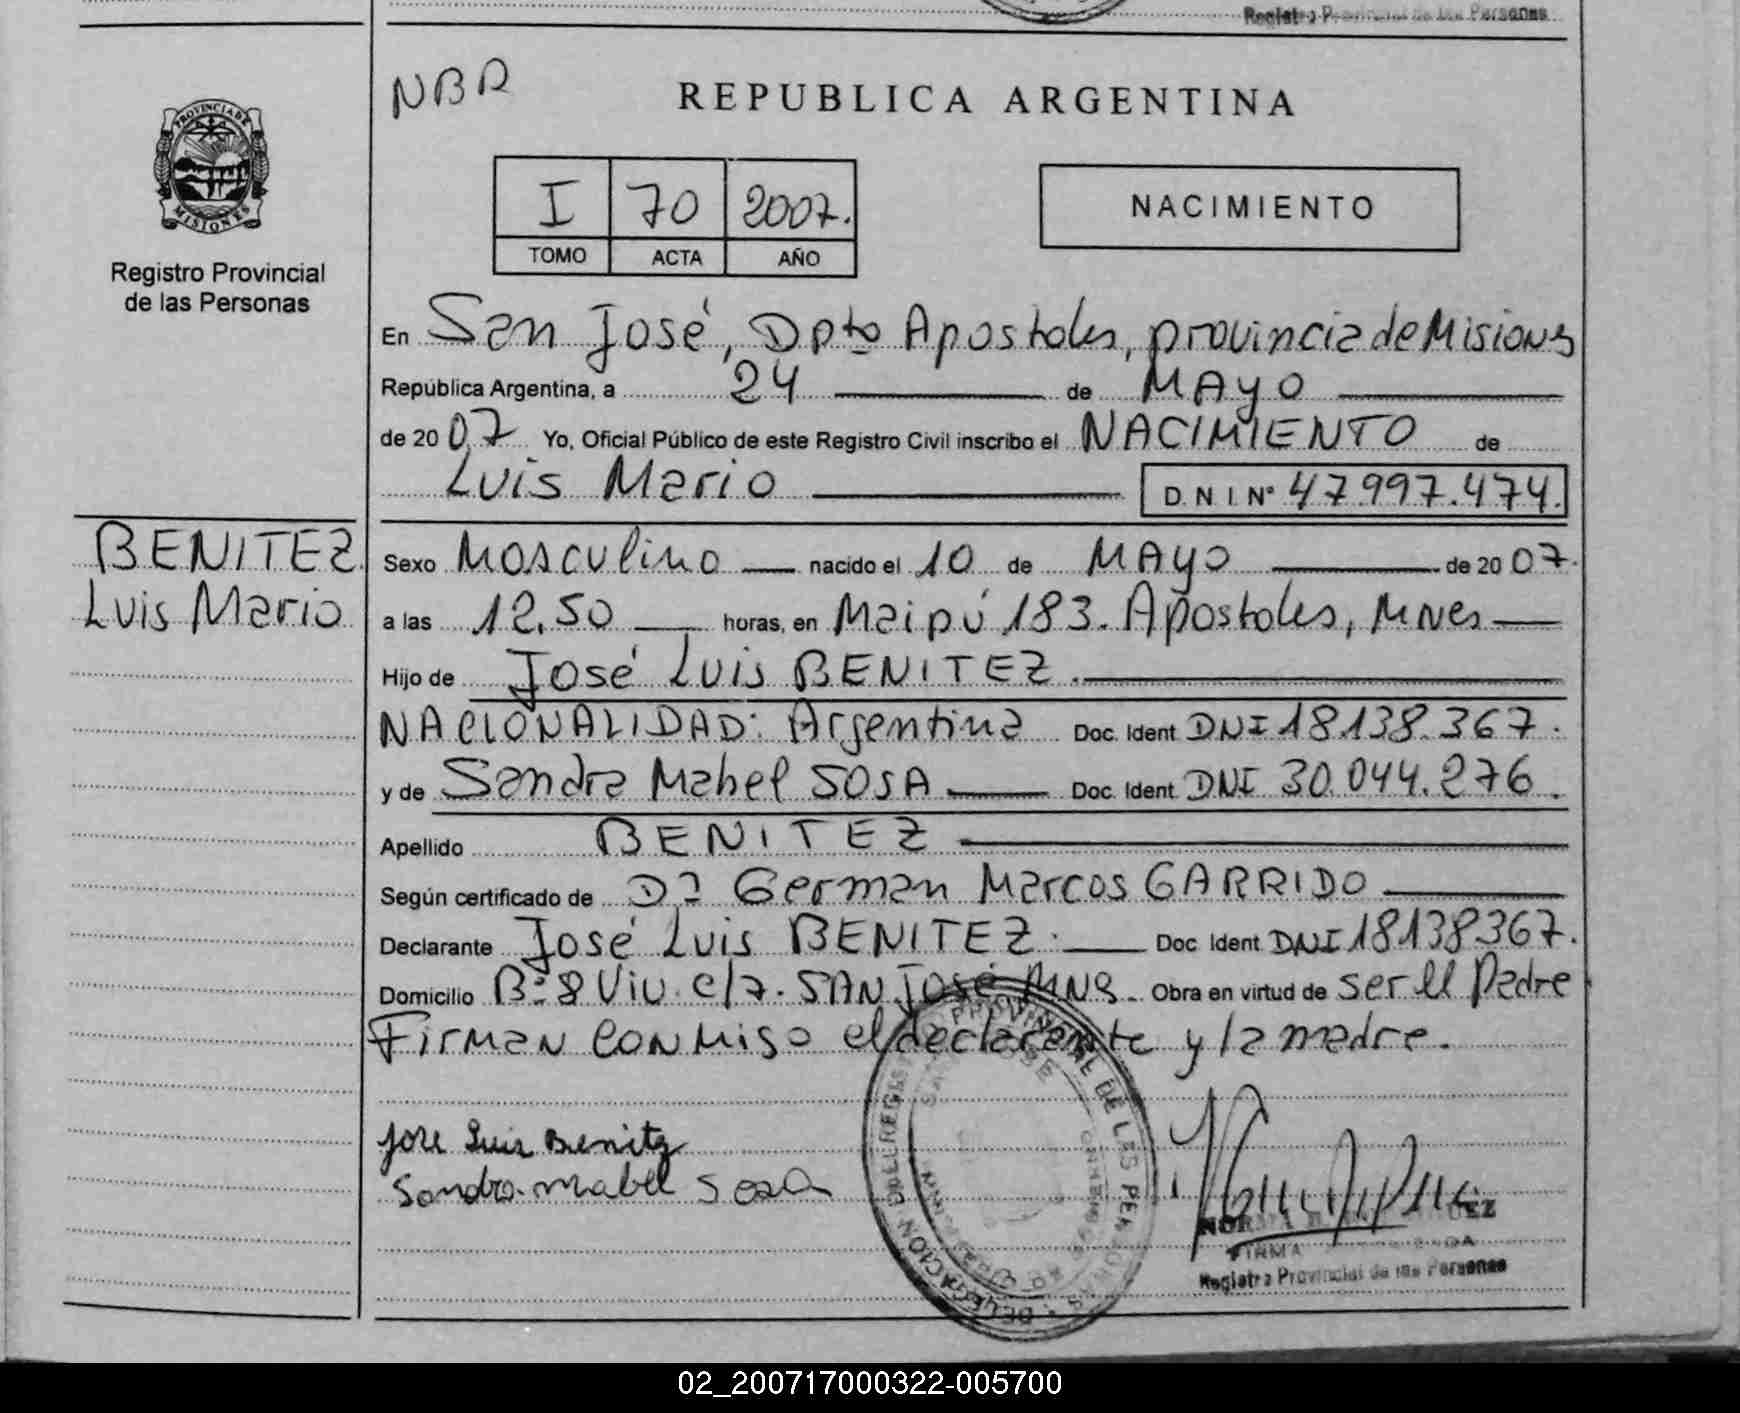 Registro Provincial de las Personas
NBR
REPUBLICA ARGENTINA
PROVINCIA DE
MISIONES
Registro Provincial
de las Personas
I 70 2007.
TOMO ACTA AÑO
NACIMIENTO
En San José, Dpto Apostoles, provincia de Misiones
República Argentina, a 24 de MAYO
de 2007 Yo, Oficial Público de este Registro Civil inscribo el NACIMIENTO de
Luis Mario D.N.I. Nº 47997.474.
BENITEZ
Luis Mario
Sexo Masculino nacido el 10 de MAYO de 2007.
a las 12,50 horas, en Maipú 183. Apostoles, Mnes
Hijo de José Luis BENITEZ.
NACIONALIDAD: Argentina Doc. Ident DNI 18.138.367.
y de Sandra Mabel SOSA Doc. Ident DNI 30.044.276.
Apellido BENITEZ
Según certificado de Dº German Marcos GARRIDO
Declarante José Luis BENITEZ. Doc Ident DNI 18138367.
Domicilio Bº 8 Viv. c/7. SAN José Mns. Obra en virtud de ser el Padre
Firman conmigo el declarante y la madre.
Jose Luis Benitez
Sandra mabel Sosa
NORMA
FIRMA
Registro Provincial de las Personas
02_200717000322-005700